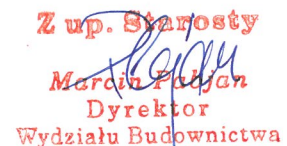 Z up. Starosty
Marcin Pabjan
Dyrektor
Wydziału Budownictwa